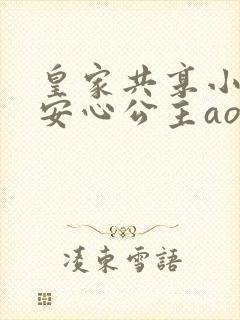 皇家共享小
安心公主ao
凌束雪語